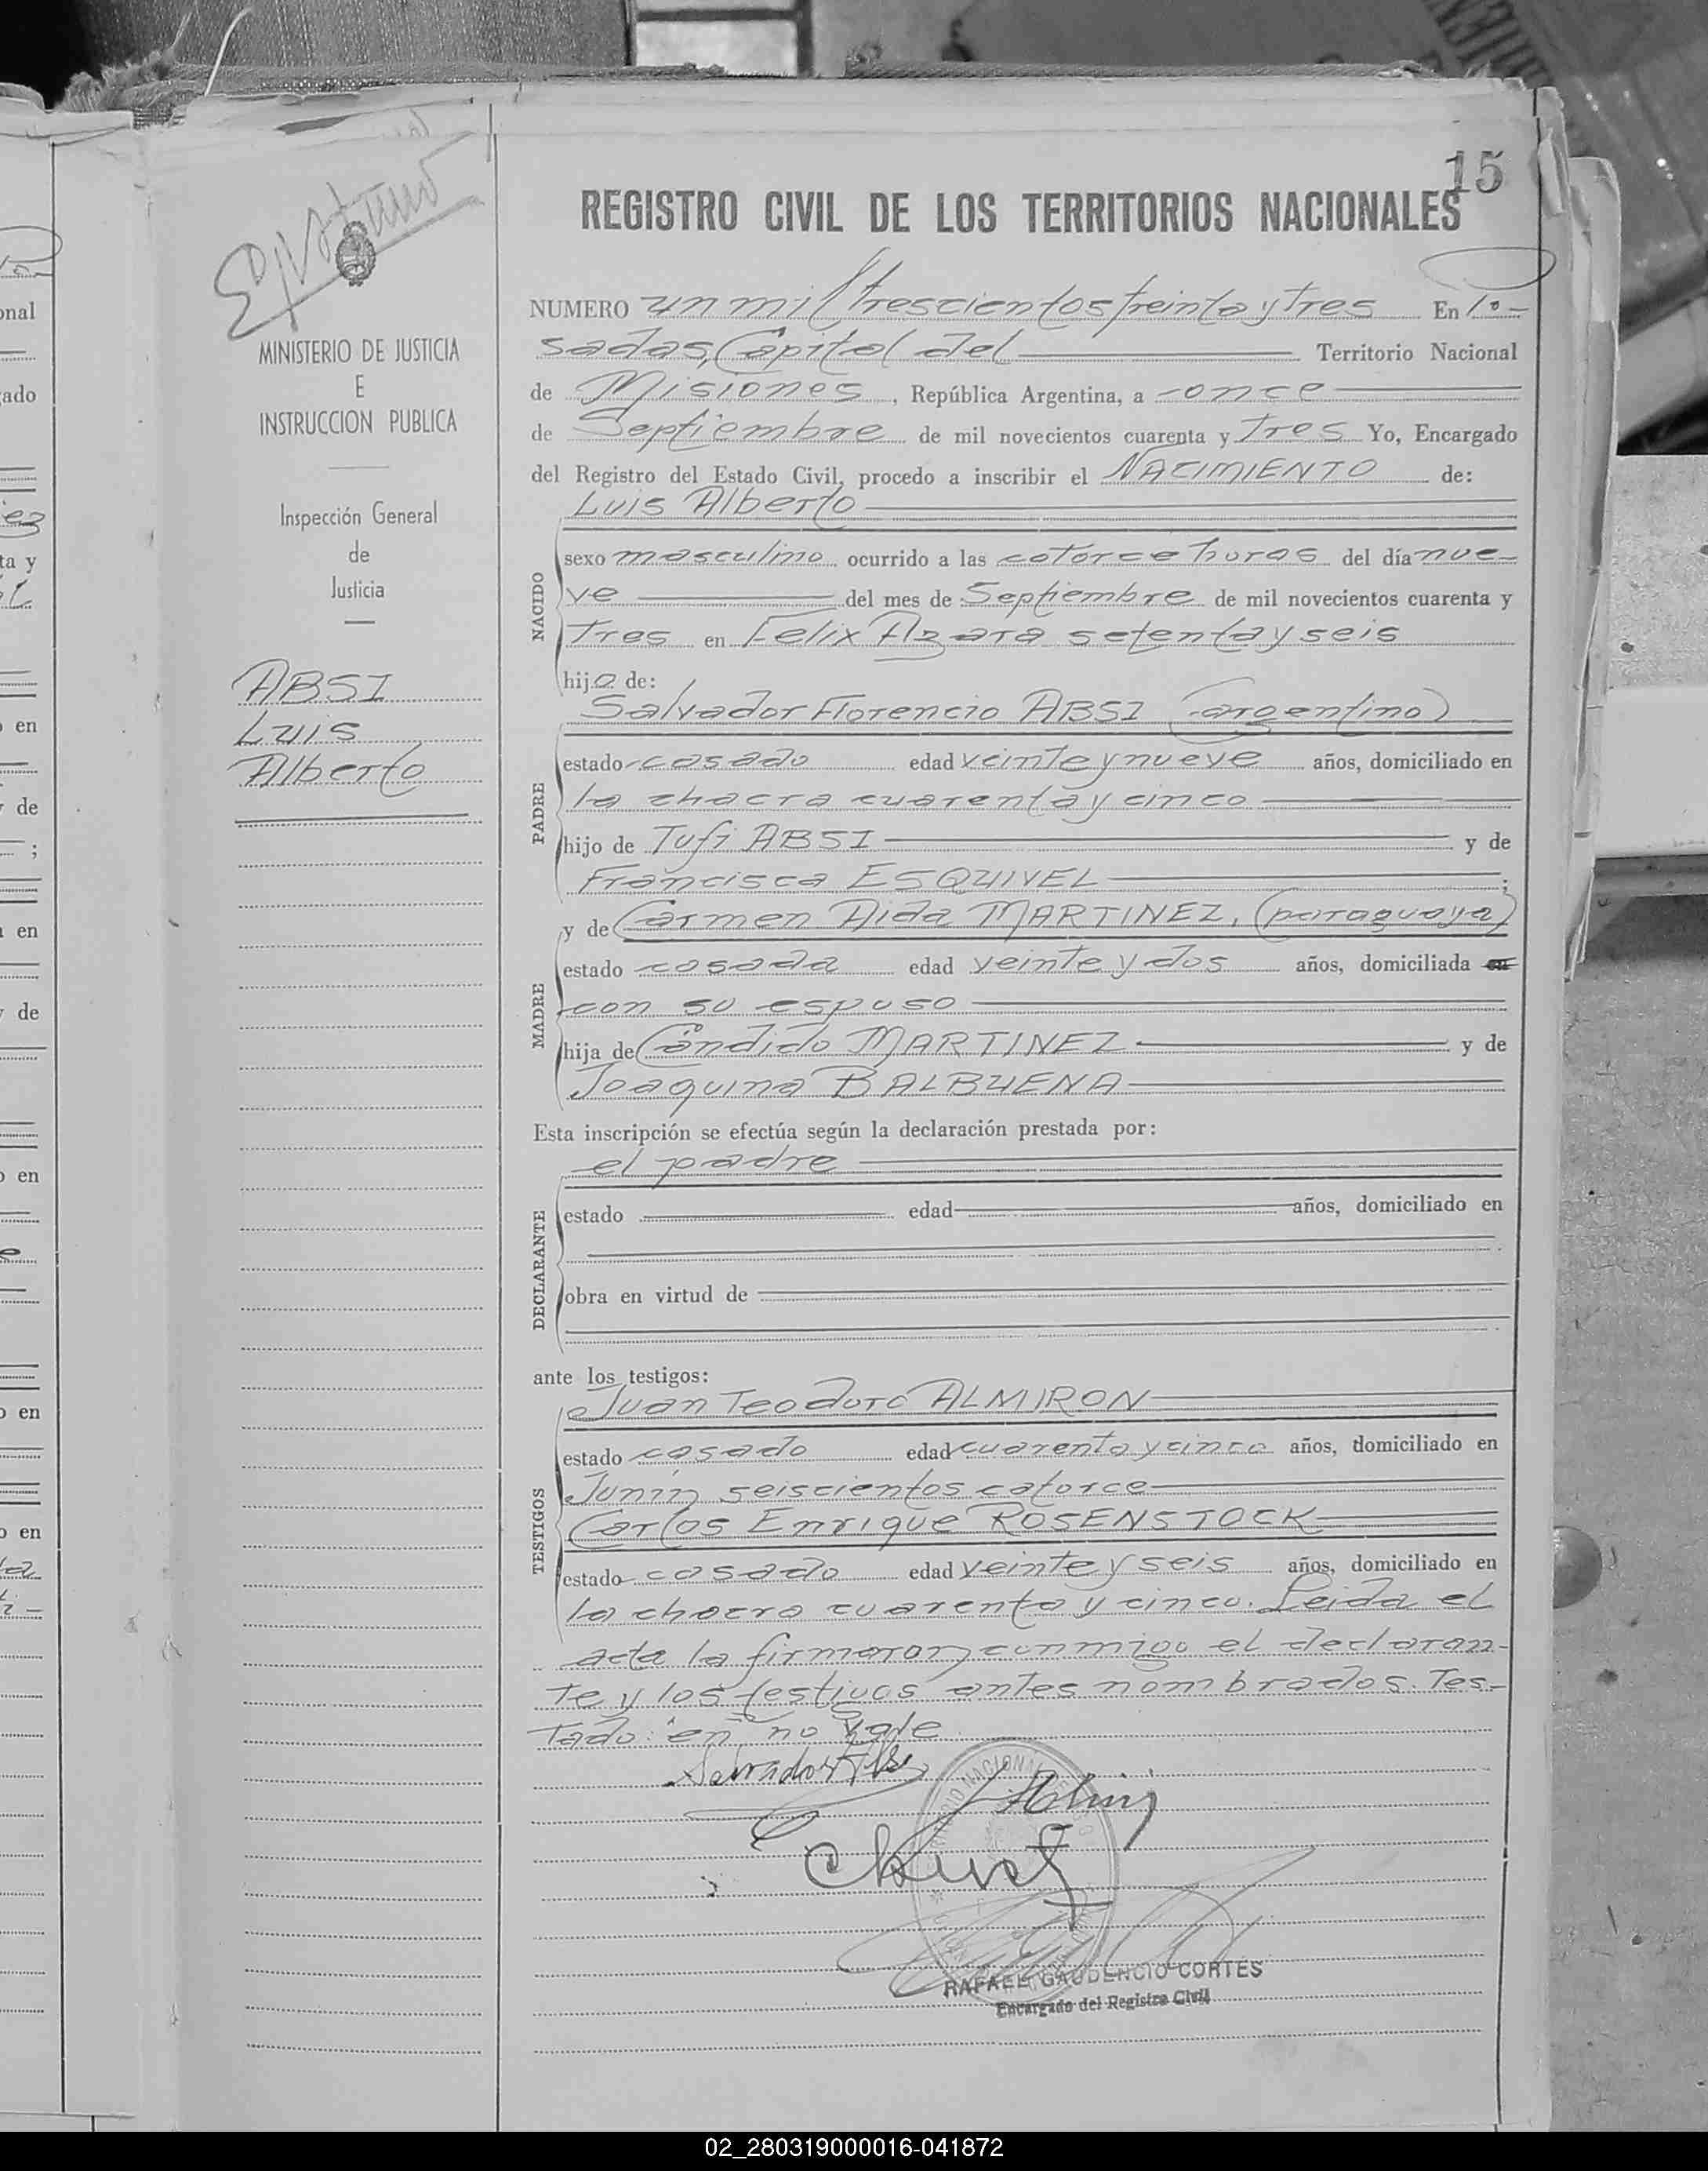 15
REGISTRO CIVIL DE LOS TERRITORIOS NACIONALES
MINISTERIO DE JUSTICIA
E
INSTRUCCION PUBLICA
Inspección General
de
Justicia
ABSI
Luis
Alberto
NUMERO un mil trescientos treinta y tres En Po-
sadas, Capital del Territorio Nacional
de Misiones, República Argentina, a once
de Septiembre de mil novecientos cuarenta y Tres Yo, Encargado
del Registro del Estado Civil, procedo a inscribir el NACIMIENTO de:
Luis Alberto
NACIDO
sexo masculino ocurrido a las catorce horas del día nue-
ve del mes de Septiembre de mil novecientos cuarenta y
Tres en Felix Azara setenta y seis
hijo de:
Salvador Florencio ABSI (argentino)
PADRE
estado casado edad veinte y nueve años, domiciliado en
la chacra cuarenta y cinco
hijo de Tufi ABSI y de
Francisca ESQUIVEL ;
y de Carmen Aida MARTINEZ, (paraguaya)
MADRE
estado casada edad veinte y dos años, domiciliada en
con su esposo
hija de Cándido MARTINEZ y de
Joaquina BALBUENA
Esta inscripción se efectúa según la declaración prestada por:
el padre
DECLARANTE
estado edad años, domiciliado en
obra en virtud de
ante los testigos:
Juan Teodoro ALMIRON
TESTIGOS
estado casado edad cuarenta y cinco años, domiciliado en
Junín seiscientos catorce
Carlos Enrique ROSENSTOCK
estado casado edad veinte y seis años, domiciliado en
la chacra cuarenta y cinco. Leida el
acta la firmaron conmigo el declaran-
te y los testigos antes nombrados. Tes-
tado: "en" no vale
RAFAEL GAUDENCIO CORTES
Encargado del Registro Civil
02_280319000016-041872